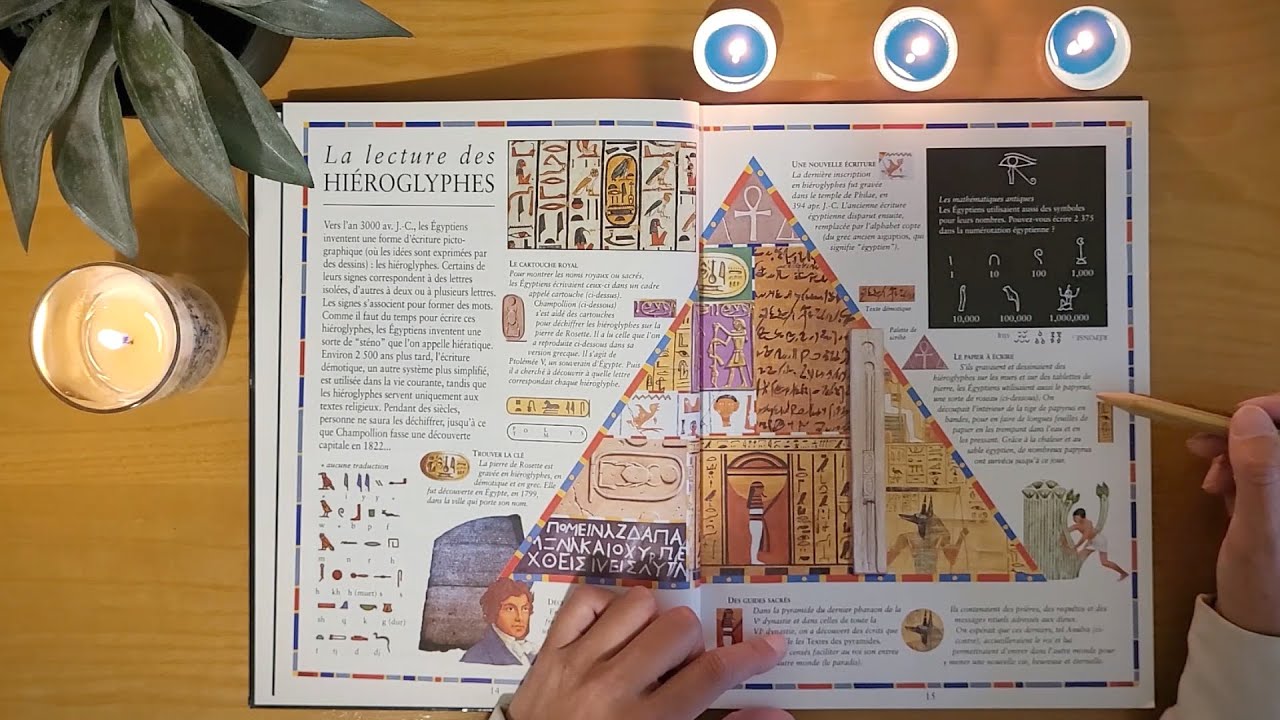 La lecture des
HIÉROGLYPHES
Vers l'an 3000 av. J.-C., les Égyptiens
inventent une forme d'écriture picto-
graphique (où les idées sont exprimées par
des dessins) : les hiéroglyphes. Certains de
leurs signes correspondent à des lettres
isolées, d'autres à deux ou à plusieurs lettres.
Les signes s'associent pour former des mots.
Comme il faut du temps pour écrire ces
hiéroglyphes, les Égyptiens inventent une
sorte de "sténo" que l'on appelle hiératique.
Environ 2 500 ans plus tard, l'écriture
démotique, un autre système plus simplifié,
est utilisée dans la vie courante, tandis que
les hiéroglyphes servent uniquement aux
textes religieux. Pendant des siècles,
personne ne saura les déchiffrer, jusqu'à ce
que Champollion fasse une découverte
capitale en 1822...
* aucune traduction
w b p f
m n r h
kh h s
sh q k g (dur)
t tj d dj
LE CARTOUCHE ROYAL
Pour montrer les noms royaux ou sacrés,
les Égyptiens écrivaient ceux-ci dans un cadre
appelé cartouche (ci-dessus).
Champollion (ci-dessous)
s'est aidé des cartouches
pour déchiffrer les hiéroglyphes sur la
pierre de Rosette. Il a lu celle que l'on
a reproduite ci-dessous dans sa
version grecque. Il s'agit de
Ptolémée V, un souverain d'Égypte. Puis
il a cherché à découvrir à quelle lettre
correspondait chaque hiéroglyphe.
TROUVER LA CLÉ
La pierre de Rosette est
gravée en hiéroglyphes, en
démotique et en grec. Elle
fut découverte en Égypte, en 1799,
dans la ville qui porte son nom.
14
UNE NOUVELLE ÉCRITURE
La dernière inscription
en hiéroglyphes fut gravée
dans le temple de Philae, en
394 apr. J.-C. L'ancienne écriture
égyptienne disparut ensuite,
remplacée par l'alphabet copte
(du grec ancien aigyption, qui
signifie "égyptien").
Texte démotique
Palette de
scribe
Les mathématiques antiques
Les Égyptiens utilisaient aussi des symboles
pour leurs nombres. Pouvez-vous écrire 2 375
dans la numérotation égyptienne ?
1 10 100 1,000
10,000 100,000 1,000,000
RÉPONSE :
LE PAPIER À ÉCRIRE
S'ils gravaient et dessinaient des
hiéroglyphes sur les murs et sur des tablettes de
pierre, les Égyptiens utilisaient aussi le papyrus,
une sorte de roseau (ci-dessous). On
découpait l'intérieur de la tige de papyrus en
bandes, pour en faire de longues feuilles de
papier en les trempant dans l'eau et en
les pressant. Grâce à la chaleur et au
sable égyptien, de nombreux papyrus
ont survécu jusqu'à ce jour.
DES GUIDES SACRÉS
Dans la pyramide du dernier pharaon de la
Ve dynastie et dans celles de toute la
VIe dynastie, on a découvert des écrits que
les Textes des pyramides.
censés faciliter au roi son entrée
autre monde (le paradis).
Ils contenaient des prières, des requêtes et des
messages rituels adressés aux dieux.
On espérait que ces derniers, tel Anubis (ci-
contre), accueilleraient le roi et lui
permettraient d'entrer dans l'autre monde pour
y mener une nouvelle vie, heureuse et éternelle.
15